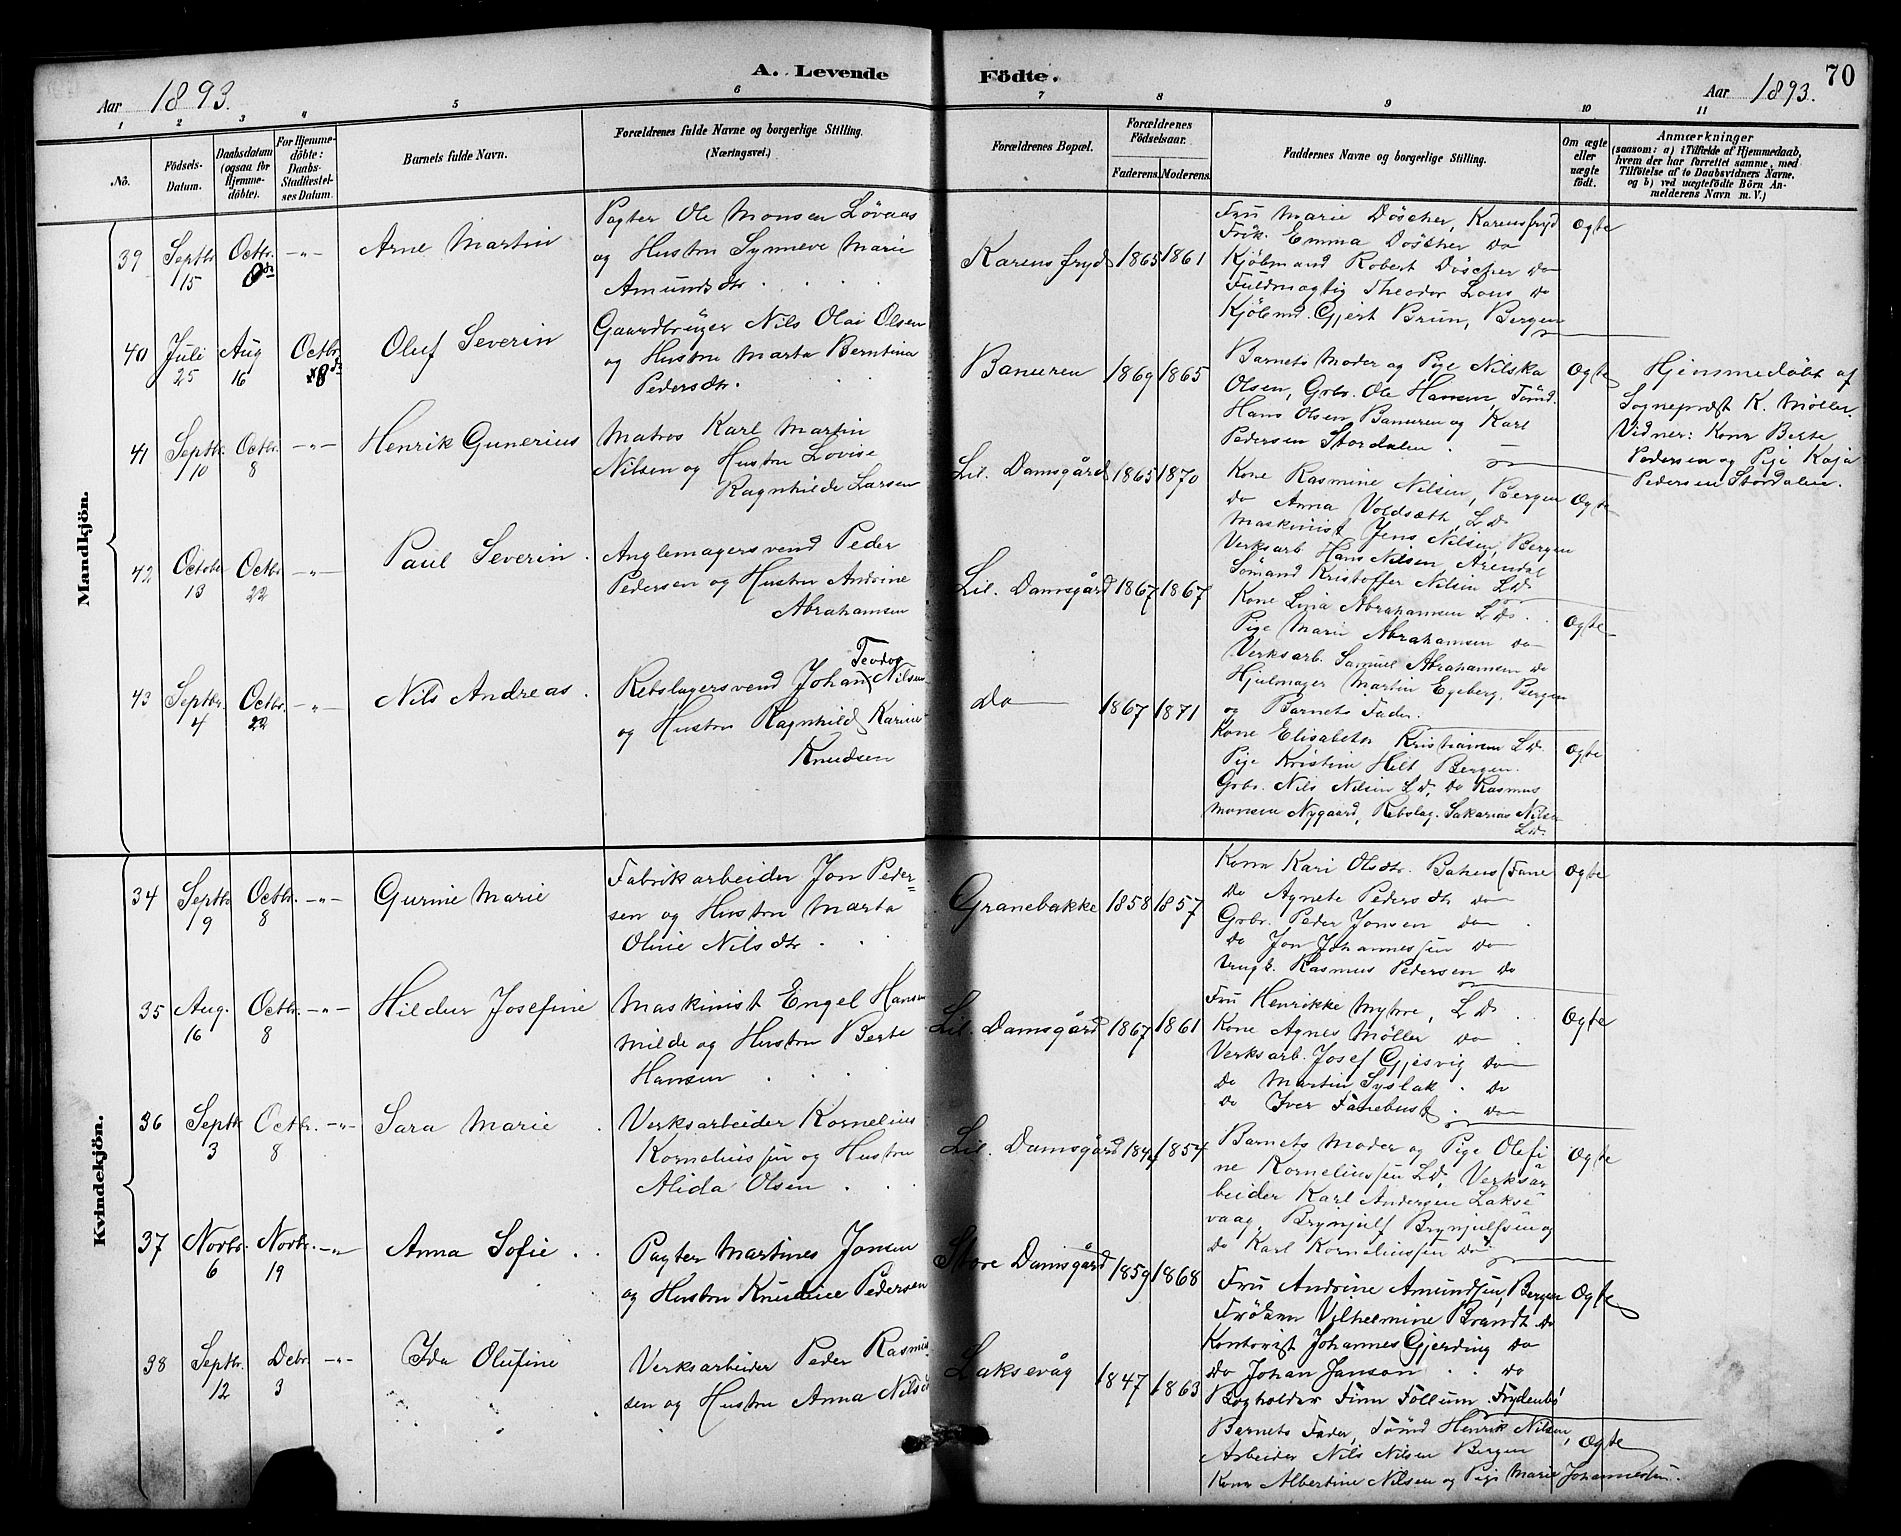 A. Levende Födte.
70
Aar 1893.
Aar 1893.
1 2 3 4 5 6 7 8 9 10 11
No.
Födsels-Datum.
Daabsdatum (ogsaa for Hjemmedöbte).
For Hjemmedöbte: Daabs-Stadfæstelses Datum.
Barnets fulde Navn.
Forældrenes fulde Navne og borgerlige Stilling.
(Næringsvei.)
Forældrenes Bopæl.
Forældrenes Födselsaar.
Faderens. Moderens.
Faddernes Navne og borgerlige Stilling.
Om ægte eller uægte födt.
Anmærkninger
(saasom: a) i Tilfælde af Hjemmedaab,
hvem der har forrettet samme, med
Tilföielse af to Daabsvidners Navne,
og b) ved uægtefödte Börn Anmelderens Navn m. V.)
Mandkjön.
39 Septbr. 15 Octbr. 8de -"- Arne Martin
Pagter Ole Monsen Løvaas
og Hustru Synneve Marie
Amundsdtr.
Karensfryd 1865 1861
Fru Marie Döscher, Karensfryd
Frök. Emma Döscher do
Kjöbmand Robert Döscher do
Fuldmægtig Theodor Lous do
Kjöbmd. Gjert Brun, Bergen
Ogte
40 Juli 25 Aug 16 Octbr. 8de Oluf Severin
Gaardbruger Nils Olai Olsen
og Hustru Marta Berntina
Pedersdtr.
Banuren 1869 1865
Barnets Moder og Pige Nilska
Olsen, Grbr. Ole Hansen, Tömd.
Hans Olsen Banuren og Karl
Pedersen Stordalen.
Ogte
Hjemmedöbt af
Sogneprest K. Möller.
Vidner: Kone Berte
Pedersen og Pige Kaja
Pedersen Stordalen.
41 Septbr. 10 Octbr. 8 -"- Henrik Gunerius
Matros Karl Martin
Nilsen og Hustru Lovise
Ragnhilde Larsen
Lil. Damsgård 1865 1870
Kone Rasmine Nilsen, Bergen
do Anna Voldsæth, L.D.
Maskinist Jens Nilsen, Bergen
Verksarb. Hans Nilsen, Arendal
Sömand Kristoffer Nilsen L.D.
Ogte
42 October 13 Octbr. 22 -"- Paul Severin.
Anglemagersvend Peder
Pedersen og Hustru Andrine
Abrahamsen
Lil. Damsgård 1867 1867
Kone Lina Abrahamsen L.D.
Pige Marie Abrahamsen do
Verksarb. Samuel Abrahamsen do
Hjulmager Martin Egeberg, Bergen
og Barnets Fader.
Ogte
43 Septbr. 4 Octbr. 22 -"- Nils Andreas.
Teodor
Rebslagersvend Johan Nilsen
og Hustru Ragnhild Karine
Knudsen
do 1867 1871
Kone Elisabeth Kristiansen L.D.
Pige Kristine Hilt Bergen.
Grbr. Nils Nilsen L.D. do Rasmus
Monsen Nygaard, Rebslag. Sakarias Nilsen
L.D.
Ogte
Kvindekjön.
34 Septbr. 9 Octbr. 8 -"- Gurine Marie
Fabrikarbeider Jon Peder=
sen og Hustru Marta
Oline Nilsdtr.
Granebakke 1858 1857
Kone Kari Olsdtr. (Fane
do Agnete Pedersdtr do
Grbr. Peder Jonsen do
do Jon Johannessen do
Ungk. Rasmus Pedersen do
Ogte
35 Aug. 16 Octbr. 8 -"- Hildur Josefine
Maskinist Engel Hansen
Milde og Hustru Berte
Hansen
Lil. Damsgård 1867 1861
Fru Henrikke Myhre, L.D.
Kone Agnes Möller do
Verksarb. Josef Gjesvig do
do Martin Syslak do
do Iver Fanebust do
Ogte
36 Septbr. 3 Octbr. 8 -"- Sara Marie
Verksarbeider Kornelius
Korneliussen og Hustru
Alida Olsen
Lil. Damsgård 1844 1854
Barnets Moder og Pige Olefi
ne Korneliussen L.D., Verksar
beider Karl Andersen Lakse
vaag, Brynjulf Brynjulfsen og
do Karl Korneliussen do
Ogte
37 Novbr. 6 Novbr. 19 -"- Anna Sofie
Pagter Martines Jonsen
og Hustru Pedersen
Store Damsgård 1859 1868
Fru Andrine Amundsen, Bergen
Fröken Vilhelmine Brandt do
Kontorist Johannes Gjerding do
do Johan Janson do
Bogholder Finn Föllum Frydenbö
Ogte
38 Septbr. 12 Debr. 3 -"- Ida Olufine
Verksarbeider Peder Rasmus
sen og Hustru Anna Nilsd
Laksevåg 1847 1863
Barnets Fader, Tömd Henrik Nilsen,
Arbeider Nils Nilsen Bergen
Kone Albertine Nilsen og Pige Marie Johannessen.
Ogte